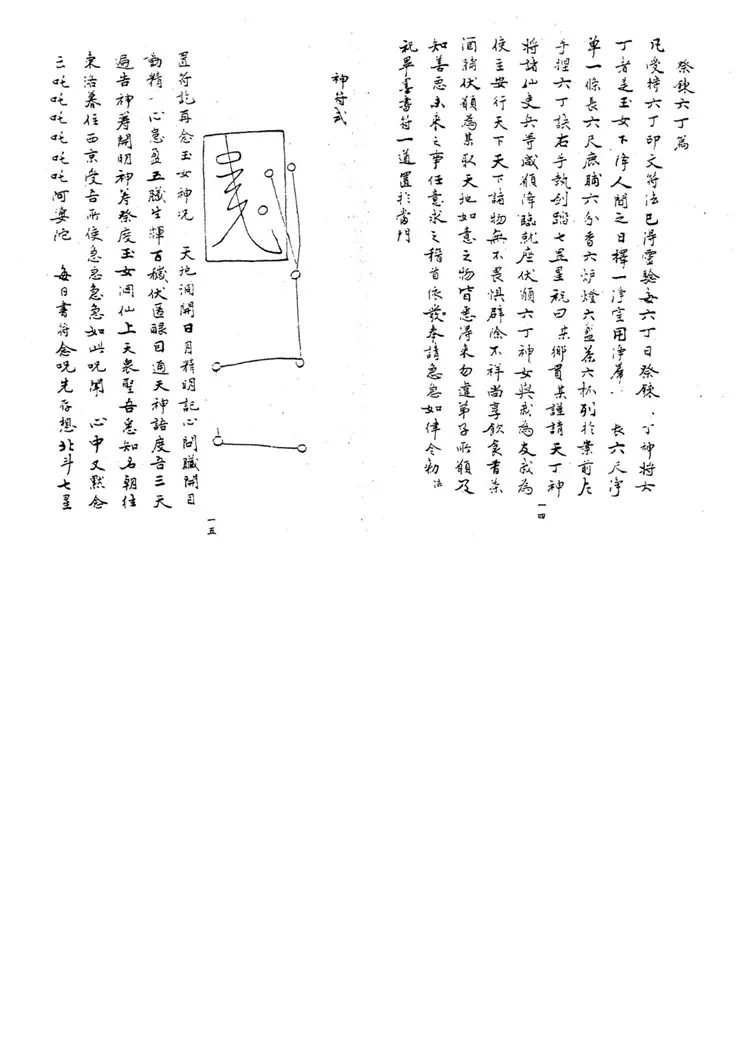 祭鍊六丁篇
凡受持六丁印文符法已得靈驗每六丁日祭鍊、丁神將六
丁者是玉女下降人間之日擇一淨室用淨席 長六尺淨
單一條長六尺鹿脯六分香六炉燈六盞茶六杯列於案前左
手捏六丁訣右手執劍踏七星罡祝曰某鄉貫某謹請天丁神
將諸仙吏兵等咸願降臨就座伏願六丁神女與我為友就為
使主安行天下天下諸物無不畏惧辟除不祥尚享飲食香茶
酒餚伏願為某取天地如意之物皆悉得來勿違弟子所願及
知善惡未來之事任意求之稽首依發奉請急急如律令勅法
祝畢墨書符一道置於當門
一四
神符式
置符訖再念玉女神咒 天地洞開日月精明記心問職開目
動精一心意盈五臟生輝百穢伏匿眼目通天神語度吾三天
遍告神筹開明神耆祭度玉女洞仙上天衆聖吾悉知名朝往
東洛暮往西京受吾所使急急急急如此咒聞 心中又黙念
云吒吒吒吒吒吒阿婆陀 每日書符念咒先存想北斗七星
一五